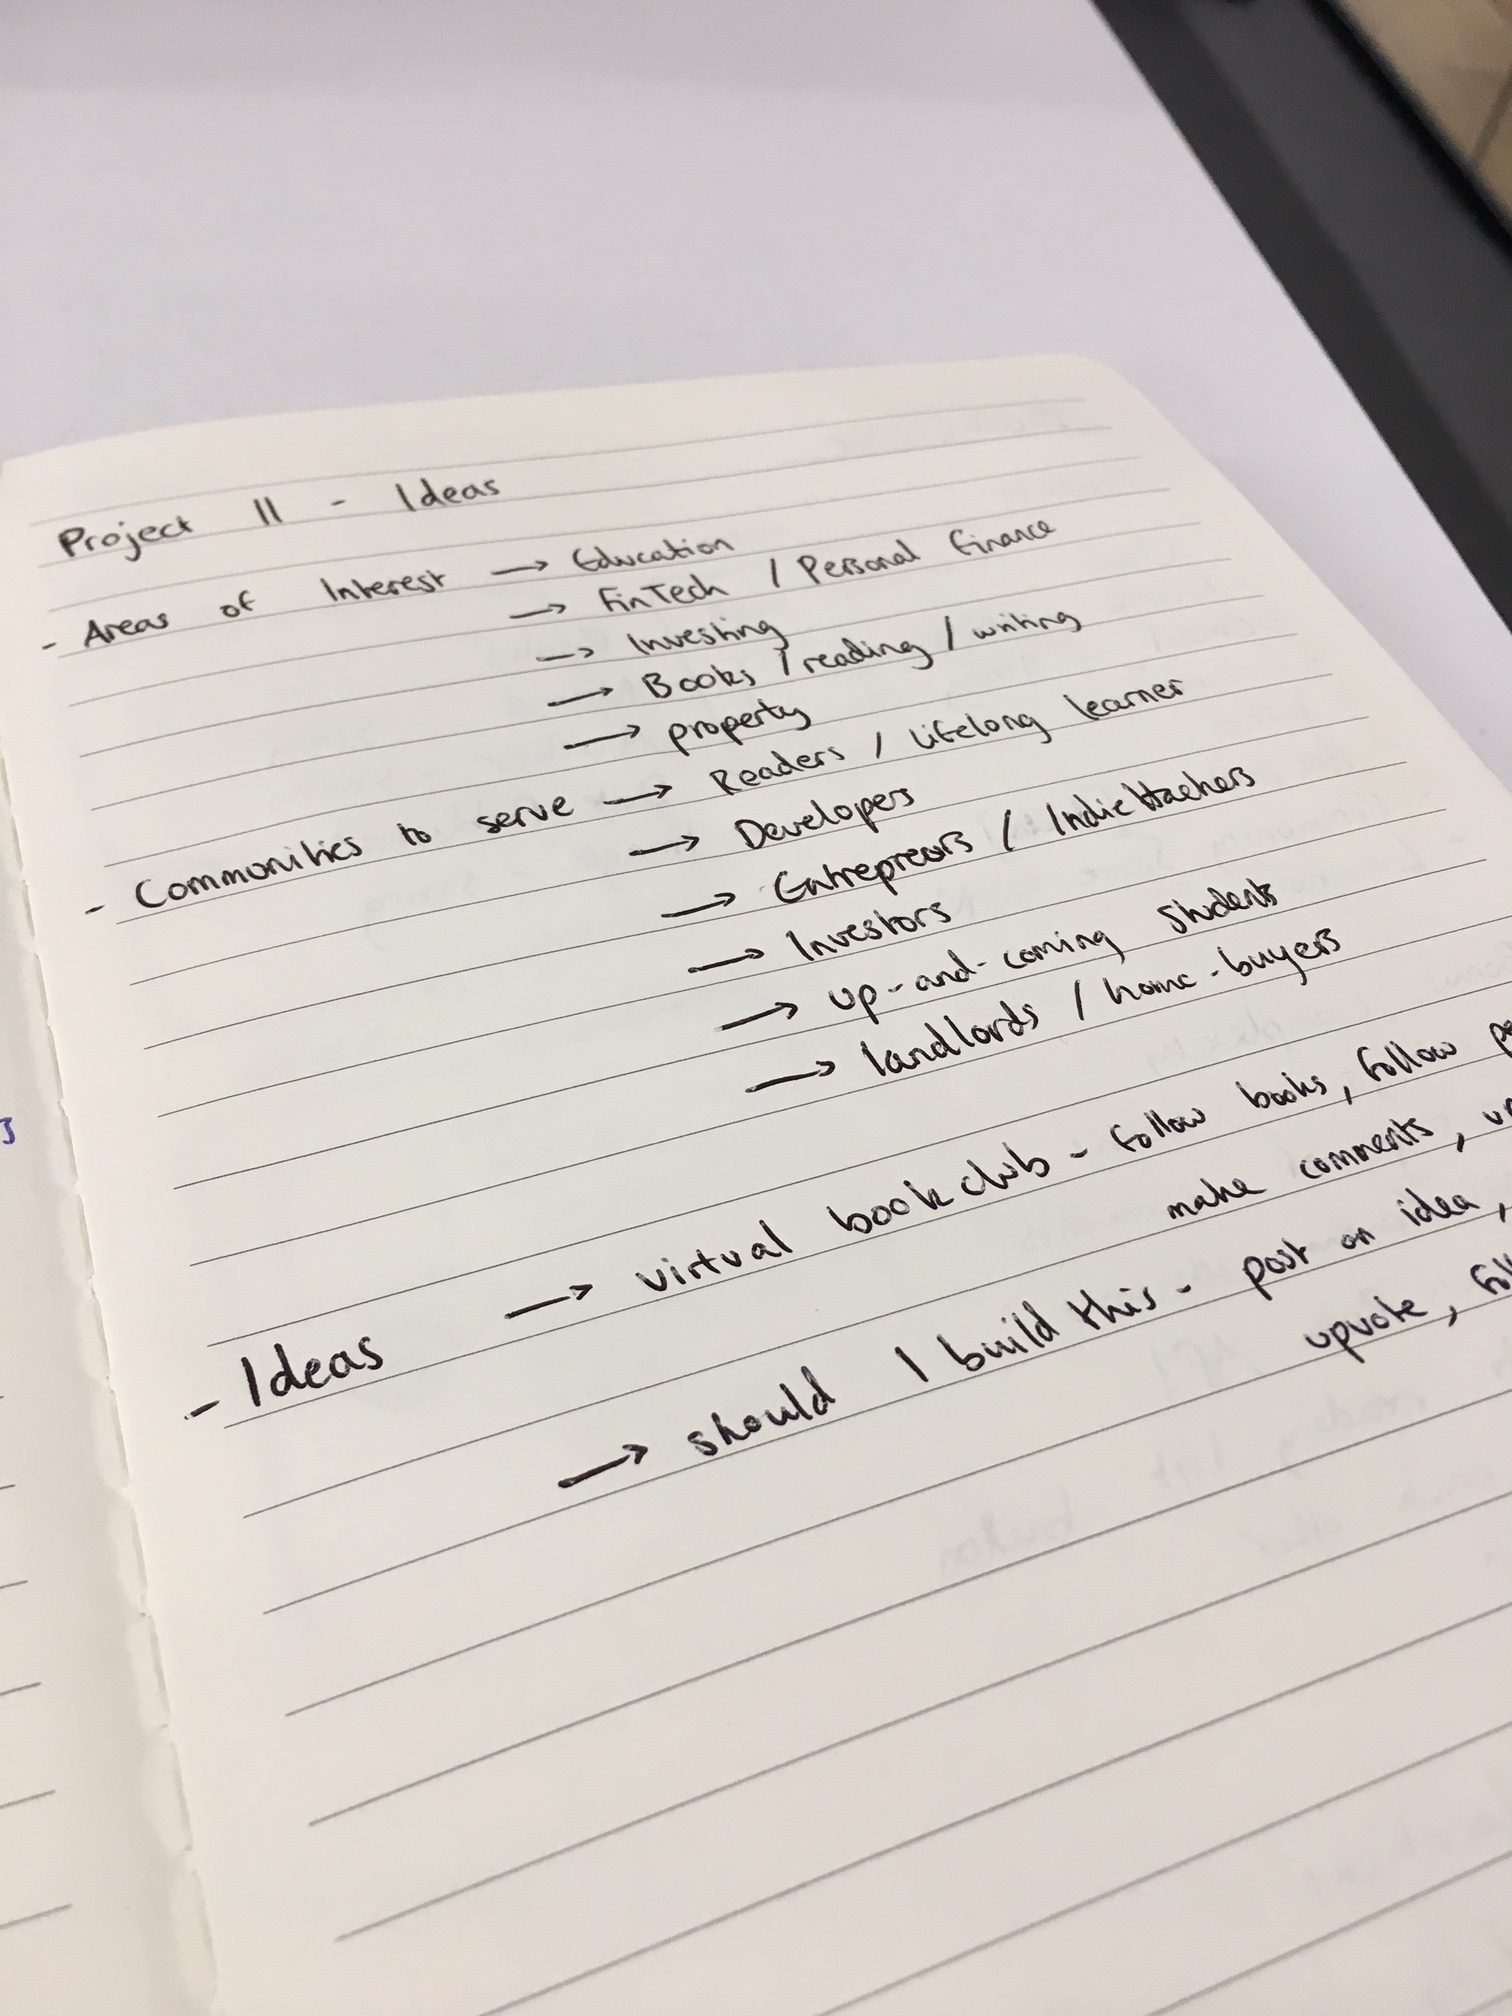 Project II - Ideas
- Areas of Interest → Education
→ FinTech / Personal finance
→ Investing
→ Books / reading / writing
→ property
- Communities to serve → Readers / Lifelong learner
→ Developers
→ Entrepreurs / IndieHackers
→ Investors
→ up-and-coming students
→ landlords / home-buyers
- Ideas → virtual book club - follow books, follow
make comments,
→ should I build this - post an idea,
upvote,